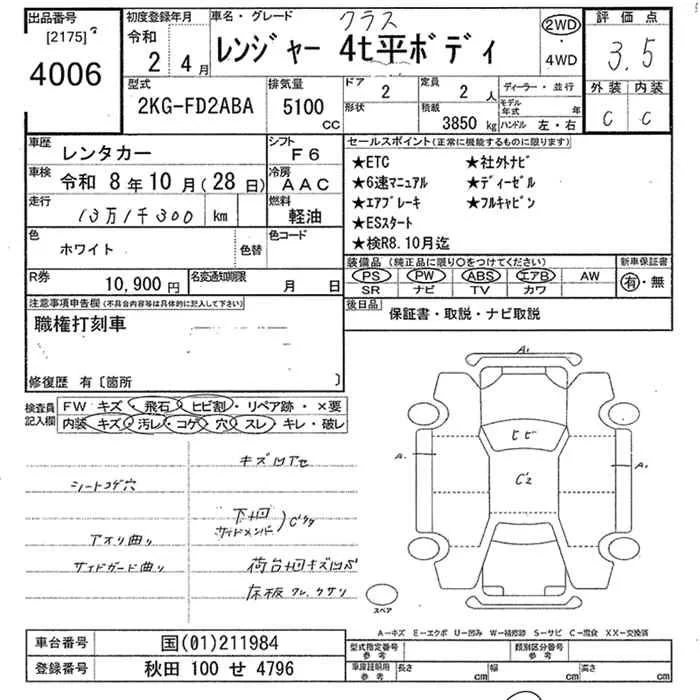 出品番号 初度登録年月 車名・グレード クラス 2WD 評価点
[2175] 令和 レンジャー 4t平ボディ ・ 3.5
4006 2 4月 4WD
型式 排気量 ドア 2 定員 2人 ディーラー・並行 外装 内装
2KG-FD2ABA 5100 cc 形状 積載 3850 kg モデル年式 年 C C
ハンドル 左・右
車歴 レンタカー シフト F6 セールスポイント(正常に機能するものに限ります)
車検 令和 8年10月(28日) 冷房 AAC ★ETC ★社外ナビ
走行 13万1千300 km 燃料 軽油 ★6速マニュアル ★ディーゼル
★エアブレーキ ★フルキャビン
★ESスタート
色 ホワイト 色替 色コード ★検R8.10月迄
装備品(純正品に限り○をつけてください) 新車保証書
R券 10,900円 名変通知期限 月 日 PS PW ABS エアB AW 有・無
SR ナビ TV カワ
注意事項申告欄(不具合内容等は具体的に記入して下さい) 後日品 保証書・取説・ナビ取説
職権打刻車
修復歴 有〔箇所 〕
検査員記入欄 FW キズ・飛石・ヒビ割・リペア跡・×要
内装 キズ・汚レ・コゲ・穴・スレ・キレ・破レ
キズ凹アセ
シートコゲ穴
下廻
サイドメンバー )Cサタ
アオリ曲り
サイドガード曲り 荷台廻キズ凹
床板
A1
ヒビ
A1 C2 A1
スペア
A-キズ E-エクボ U-凹み W-補修跡 S-サビ C-腐食 XX-交換済
車台番号 国(01)211984 型式指定番号 参考 類別区分番号 参考
登録番号 秋田 100 せ 4796 車庫証明用 参考 長さ cm 幅 cm 高さ cm